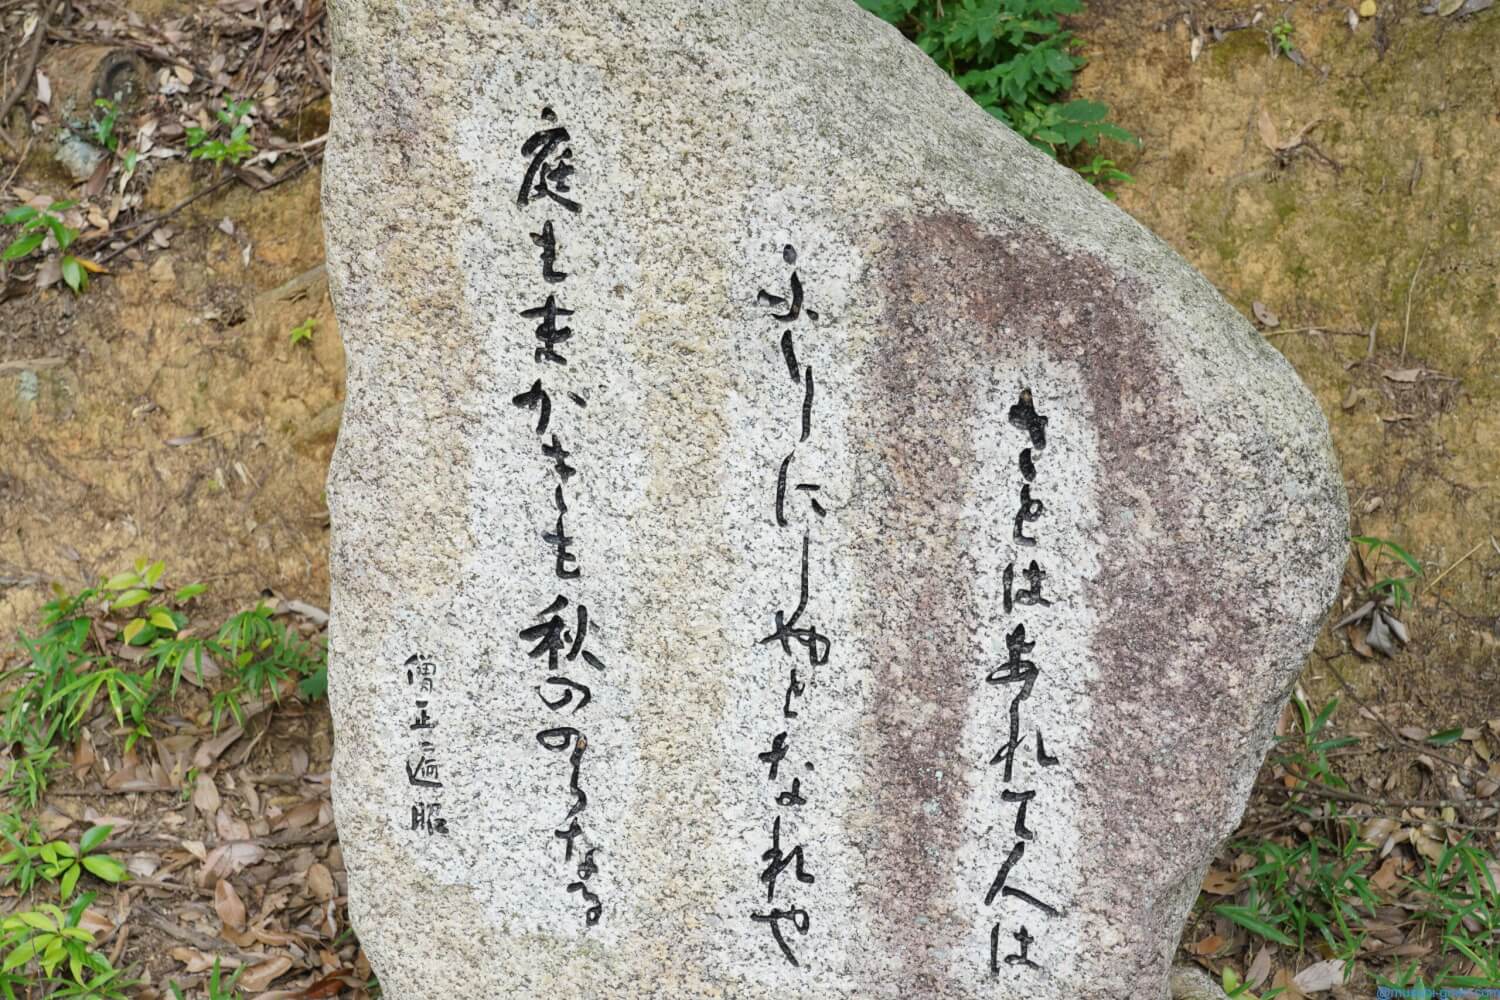 さとはあれて人は
ふりにしやとなれや
庭もまかきも秋ののらなる
僧正遍昭